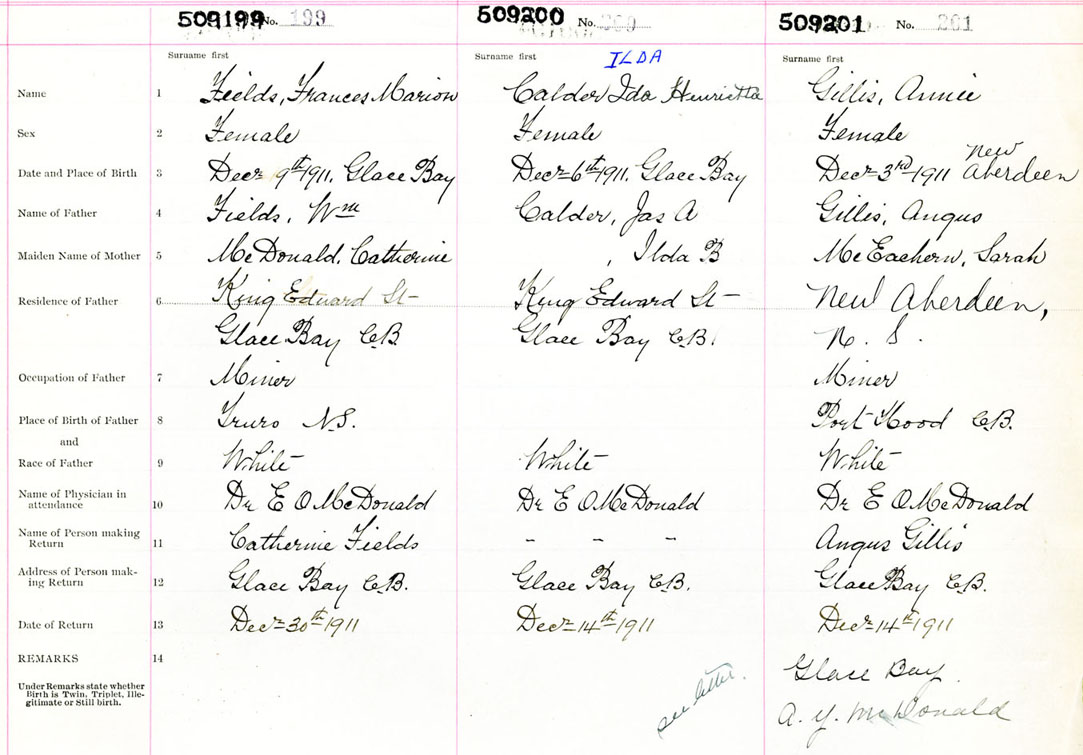 509199 No. 199
509200 No. 200
509201 No. 201
Surname first
Surname first
ILDA
Surname first
Name 1 Fields, Frances Marion Calder Ida Henrietta Gillis, Annie
Sex 2 Female Female Female
New
Date and Place of Birth 3 Decr 9th 1911. Glace Bay Decr 6th 1911. Glace Bay Decr 3rd 1911 Aberdeen
Name of Father 4 Fields, Wm Calder, Jas A Gillis, Angus
Maiden Name of Mother 5 McDonald, Catherine , Ilda B McEachern, Sarah
Residence of Father 6 King Edward St King Edward St New Aberdeen,
Glace Bay C.B. Glace Bay C.B. N. S.
Occupation of Father 7 Miner Miner
Place of Birth of Father 8 Truro N.S. Port Hood C.B.
and
Race of Father 9 White White White
Name of Physician in
attendance 10 Dr E O McDonald Dr E O McDonald Dr E O McDonald
Name of Person making
Return 11 Catherine Fields - - - Angus Gillis
Address of Person mak-
ing Return 12 Glace Bay C.B. Glace Bay C.B. Glace Bay C.B.
Date of Return 13 Decr 30th 1911 Decr 14th 1911 Decr 14th 1911
REMARKS 14 Glace Bay.
Under Remarks state whether
Birth is Twin, Triplet, Ille-
gitimate or Still birth.
see letter.
A. Y. McDonald